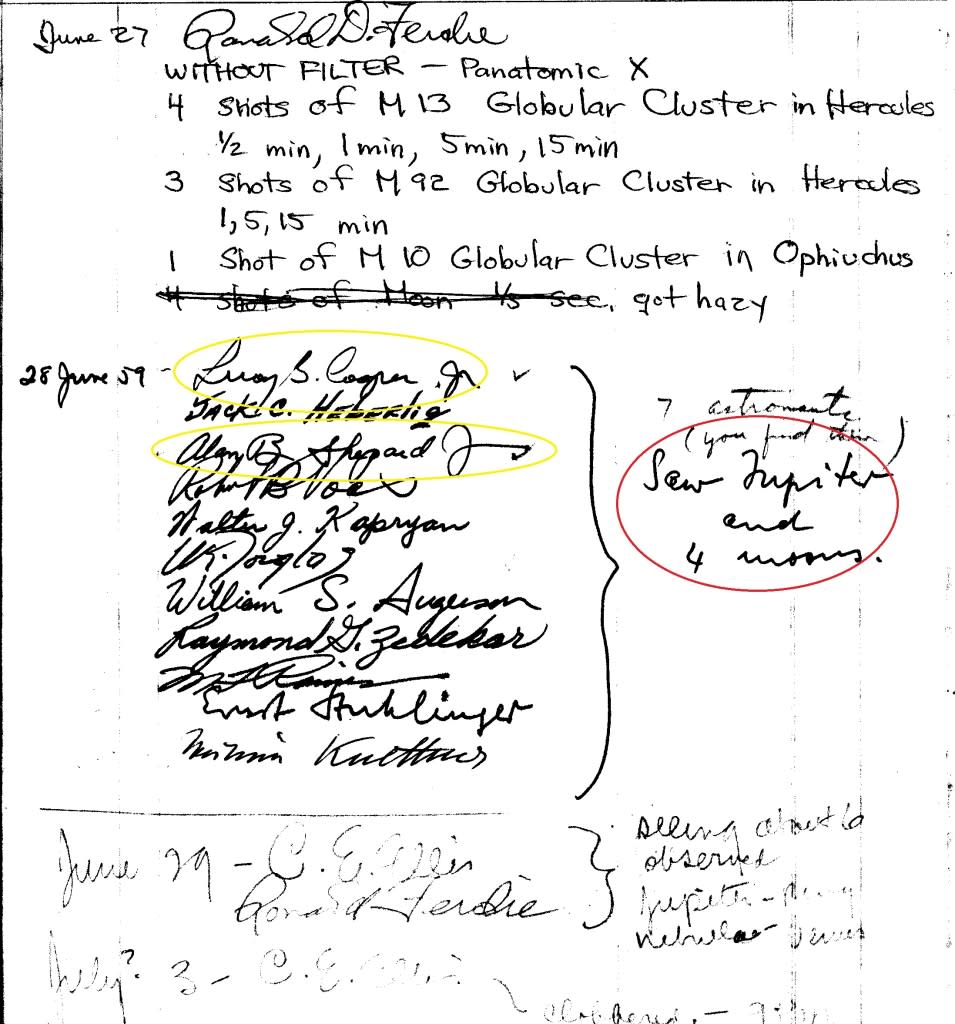 June 27 Ronald D. Ferdie
WITHOUT FILTER — Panatomic X
4 Shots of M 13 Globular Cluster in Hercules
1/2 min, 1 min, 5 min, 15 min
3 Shots of M 92 Globular Cluster in Hercules
1, 5, 15 min
1 Shot of M 10 Globular Cluster in Ophiuchus
4 Shots of Moon 1/5 sec. got hazy
28 June 59 - Leroy G. Cooper, Jr. ✓
Jack C. Heberlig
Alan B. Shepard Jr
Robert B Voas
Walter J. Kapryan
William S. Augerson
Raymond G. Zedekar
Ernst Stuhlinger
Kuettner
7 astronauts
(you find them)
Saw Jupiter
and
4 moons.
June 29 - C. E. Ellis
Ronald Ferdie
seeing about 6
observed
Jupiter -
nebulae - Venus
July? 3 - C. E. Ellis
clobbered. -